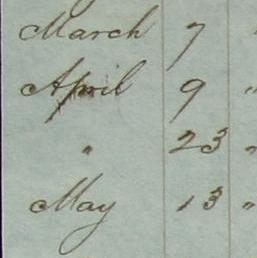 March 7 "
April 9 "
" 23 "
May 13 "